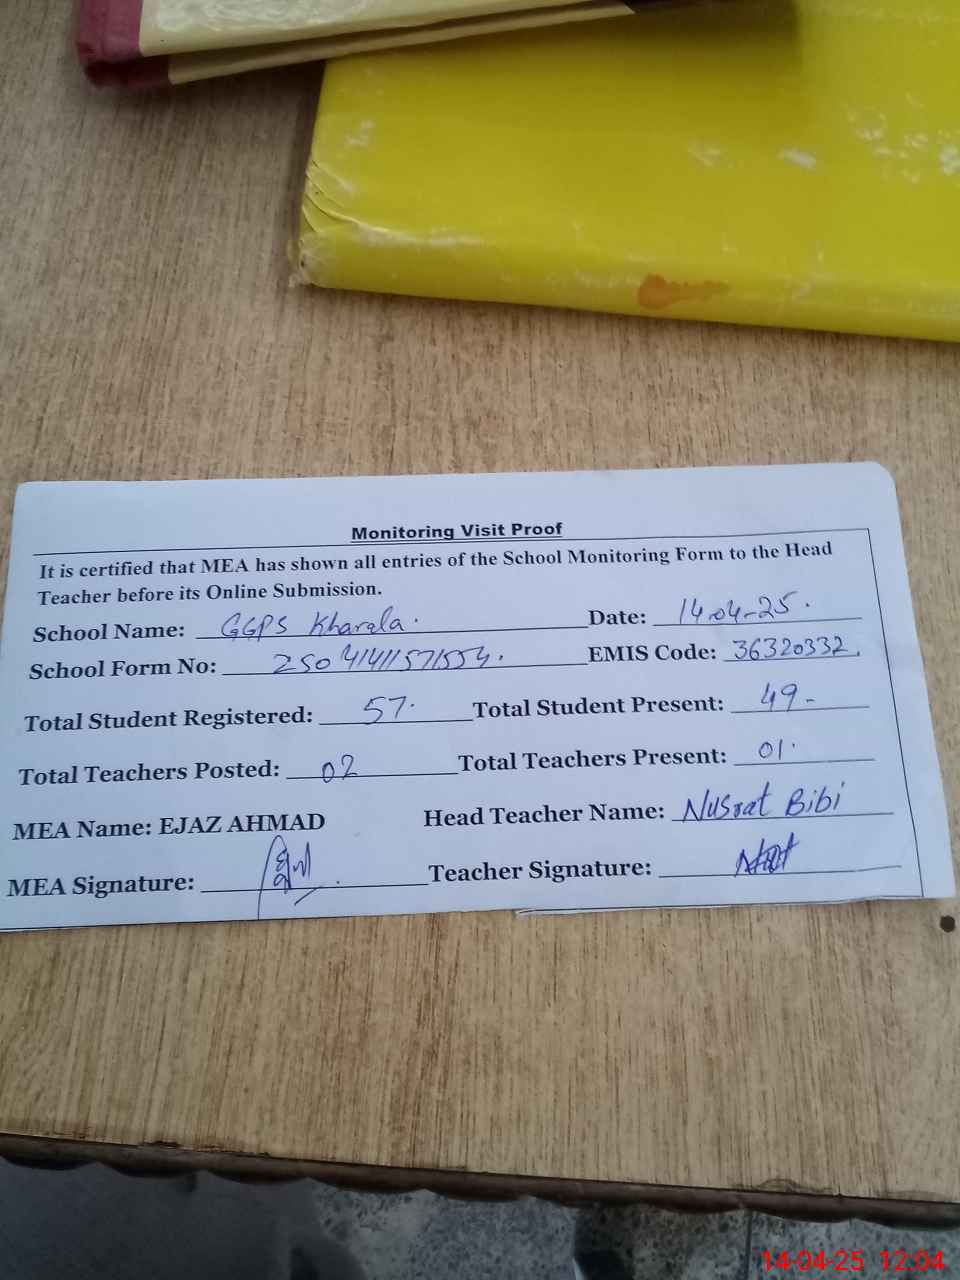 Monitoring Visit Proof
It is certified that MEA has shown all entries of the School Monitoring Form to the Head
Teacher before its Online Submission.
School Name: GGPS Kharala. Date: 14-04-25.
School Form No: EMIS Code: 36320332.
Total Student Registered: 57. Total Student Present: 49-
Total Teachers Posted: 02 Total Teachers Present: 01.
MEA Name: EJAZ AHMAD Head Teacher Name: Nusrat Bibi
MEA Signature: Teacher Signature:
14-04-25 12:04